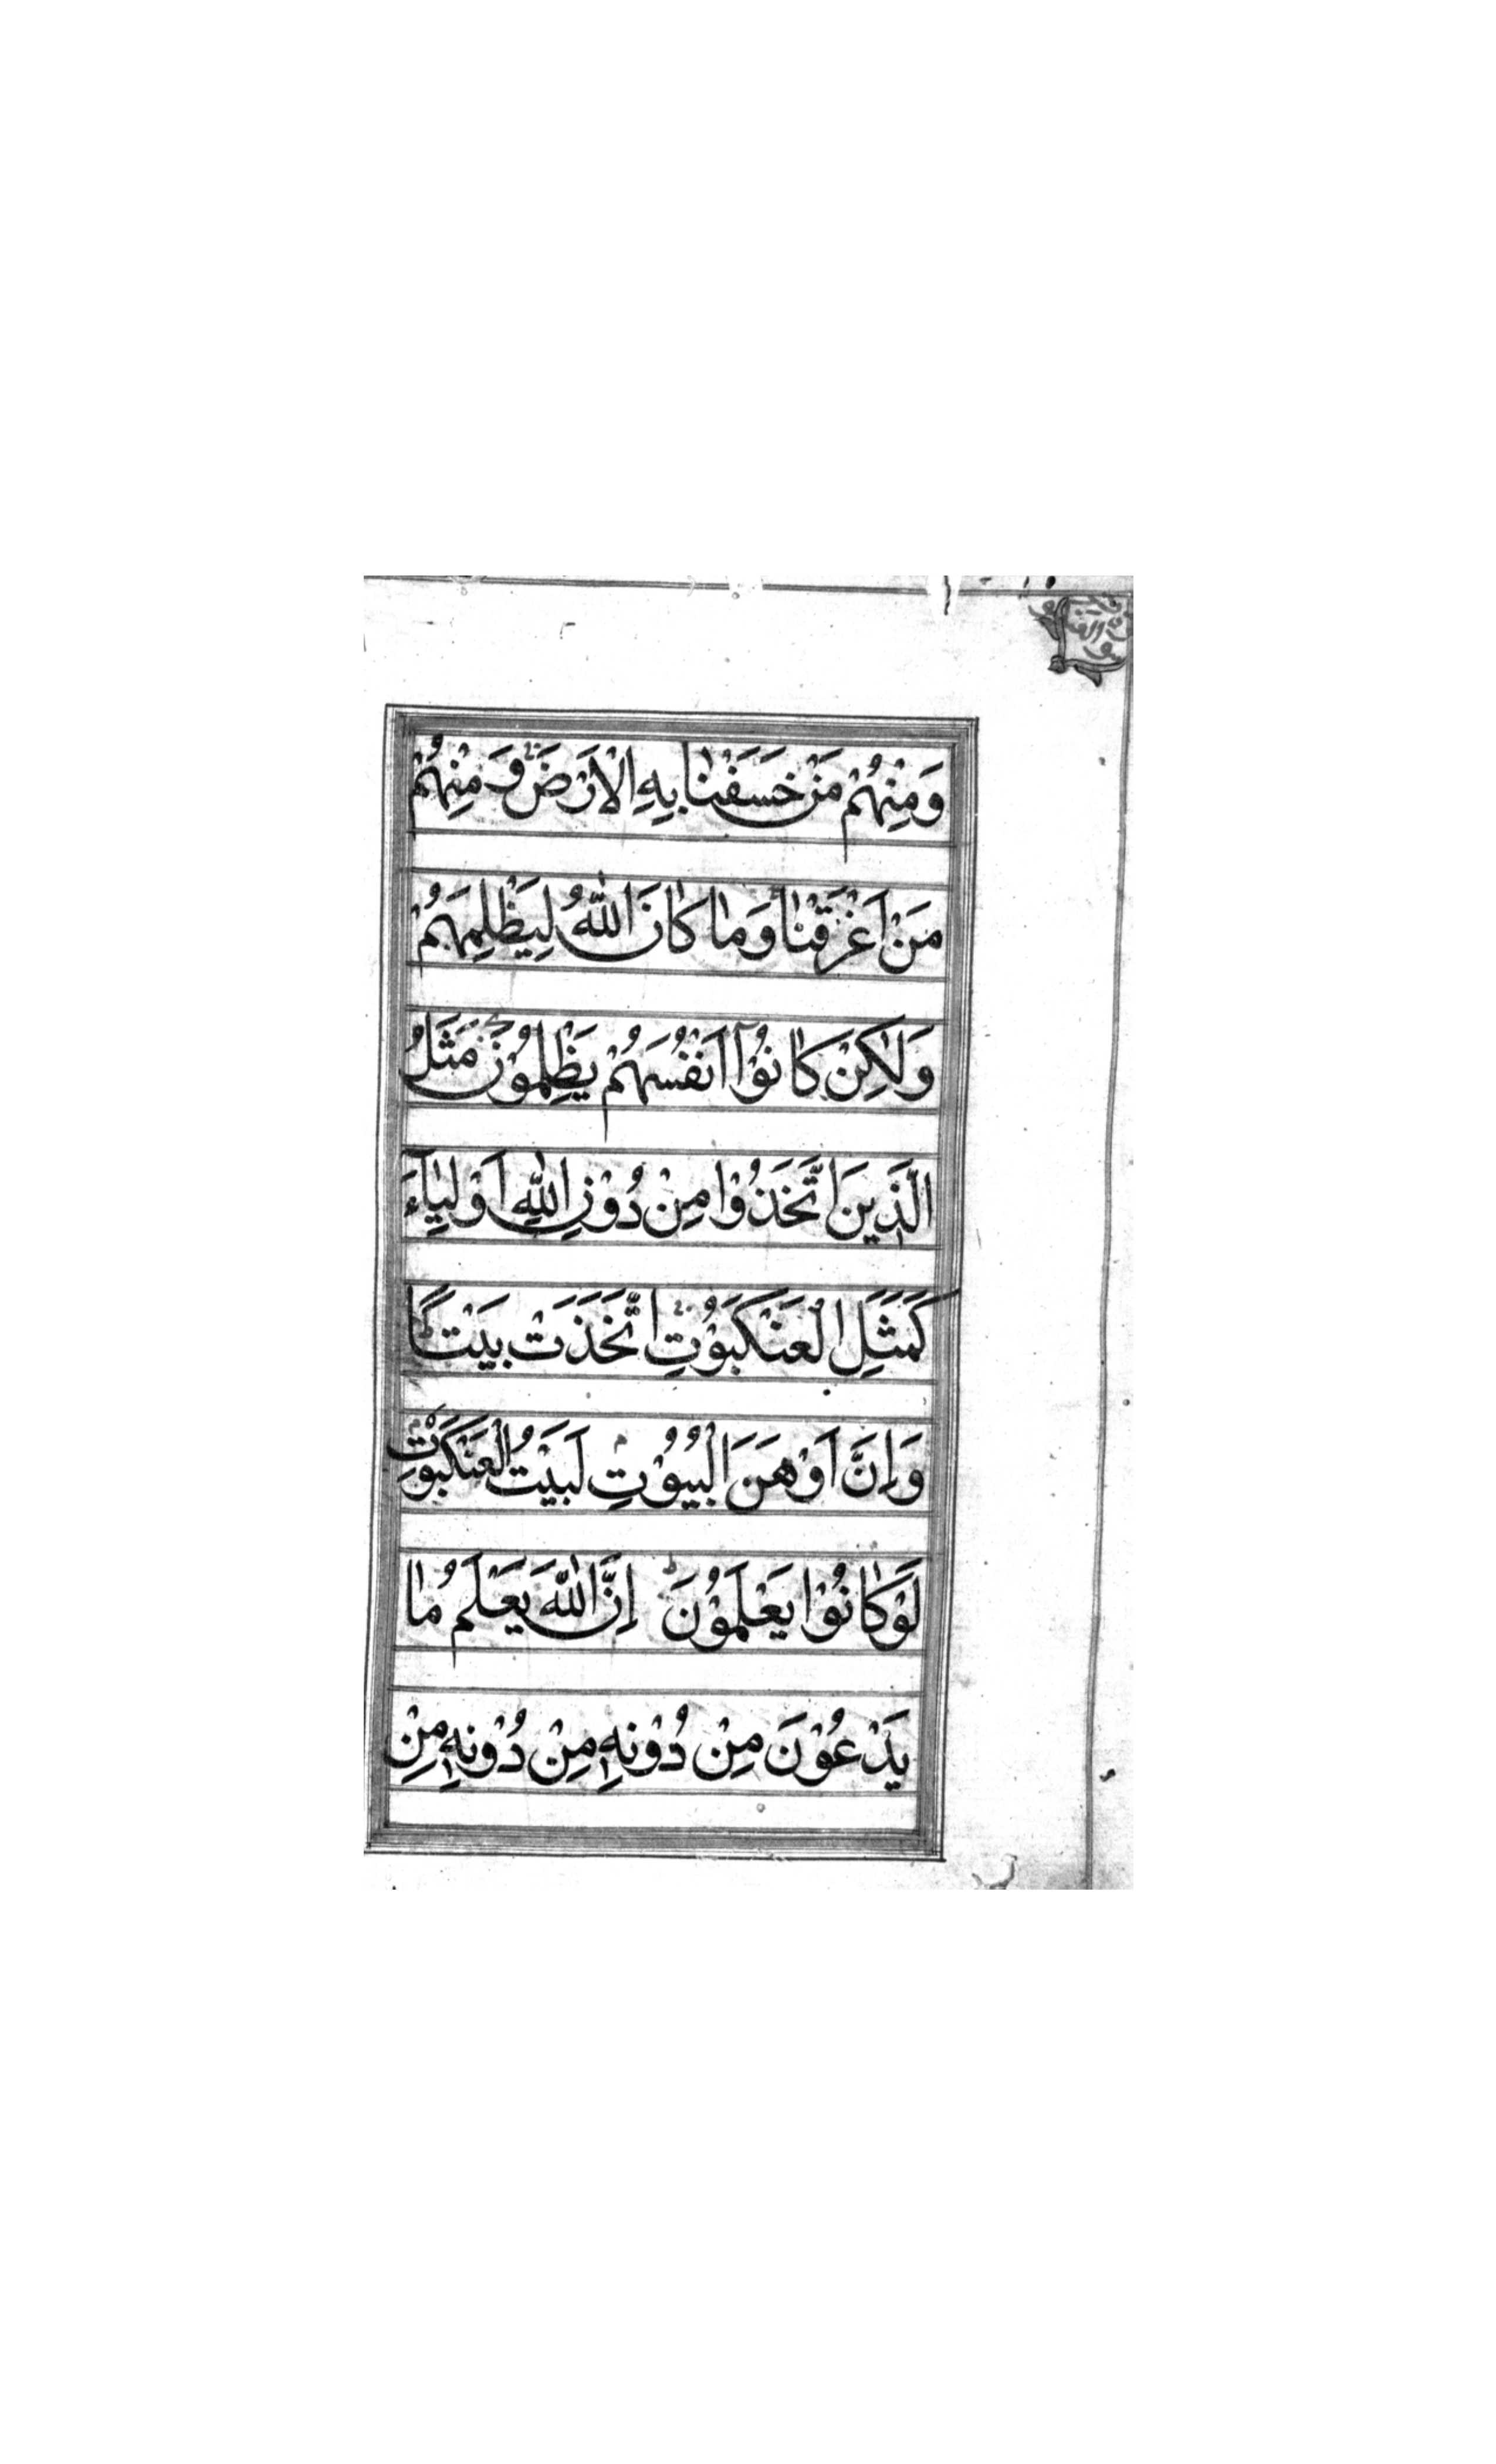 وَمِنْهُمْ مَنْ خَسَفْنَا بِهِ الْاَرْضَ وَمِنْهُمْ
مَنْ اَغْرَقْنَا وَمَا كَانَ اللّٰهُ لِيَظْلِمَهُمْ
وَلٰكِنْ كَانُوْٓا اَنْفُسَهُمْ يَظْلِمُوْنَ مَثَلُ
الَّذِينَ اتَّخَذُوْا مِنْ دُوْنِ اللّٰهِ اَوْلِيَآءَ
كَمَثَلِ الْعَنْكَبُوْتِ اِتَّخَذَتْ بَيْتًا
وَاِنَّ اَوْهَنَ الْبُيُوْتِ لَبَيْتُ الْعَنْكَبُوْتِ
لَوْ كَانُوْا يَعْلَمُوْنَ اِنَّ اللّٰهَ يَعْلَمُ مَا
يَدْعُوْنَ مِنْ دُوْنِهٖ مِنْ دُوْنِهٖ مِنْ